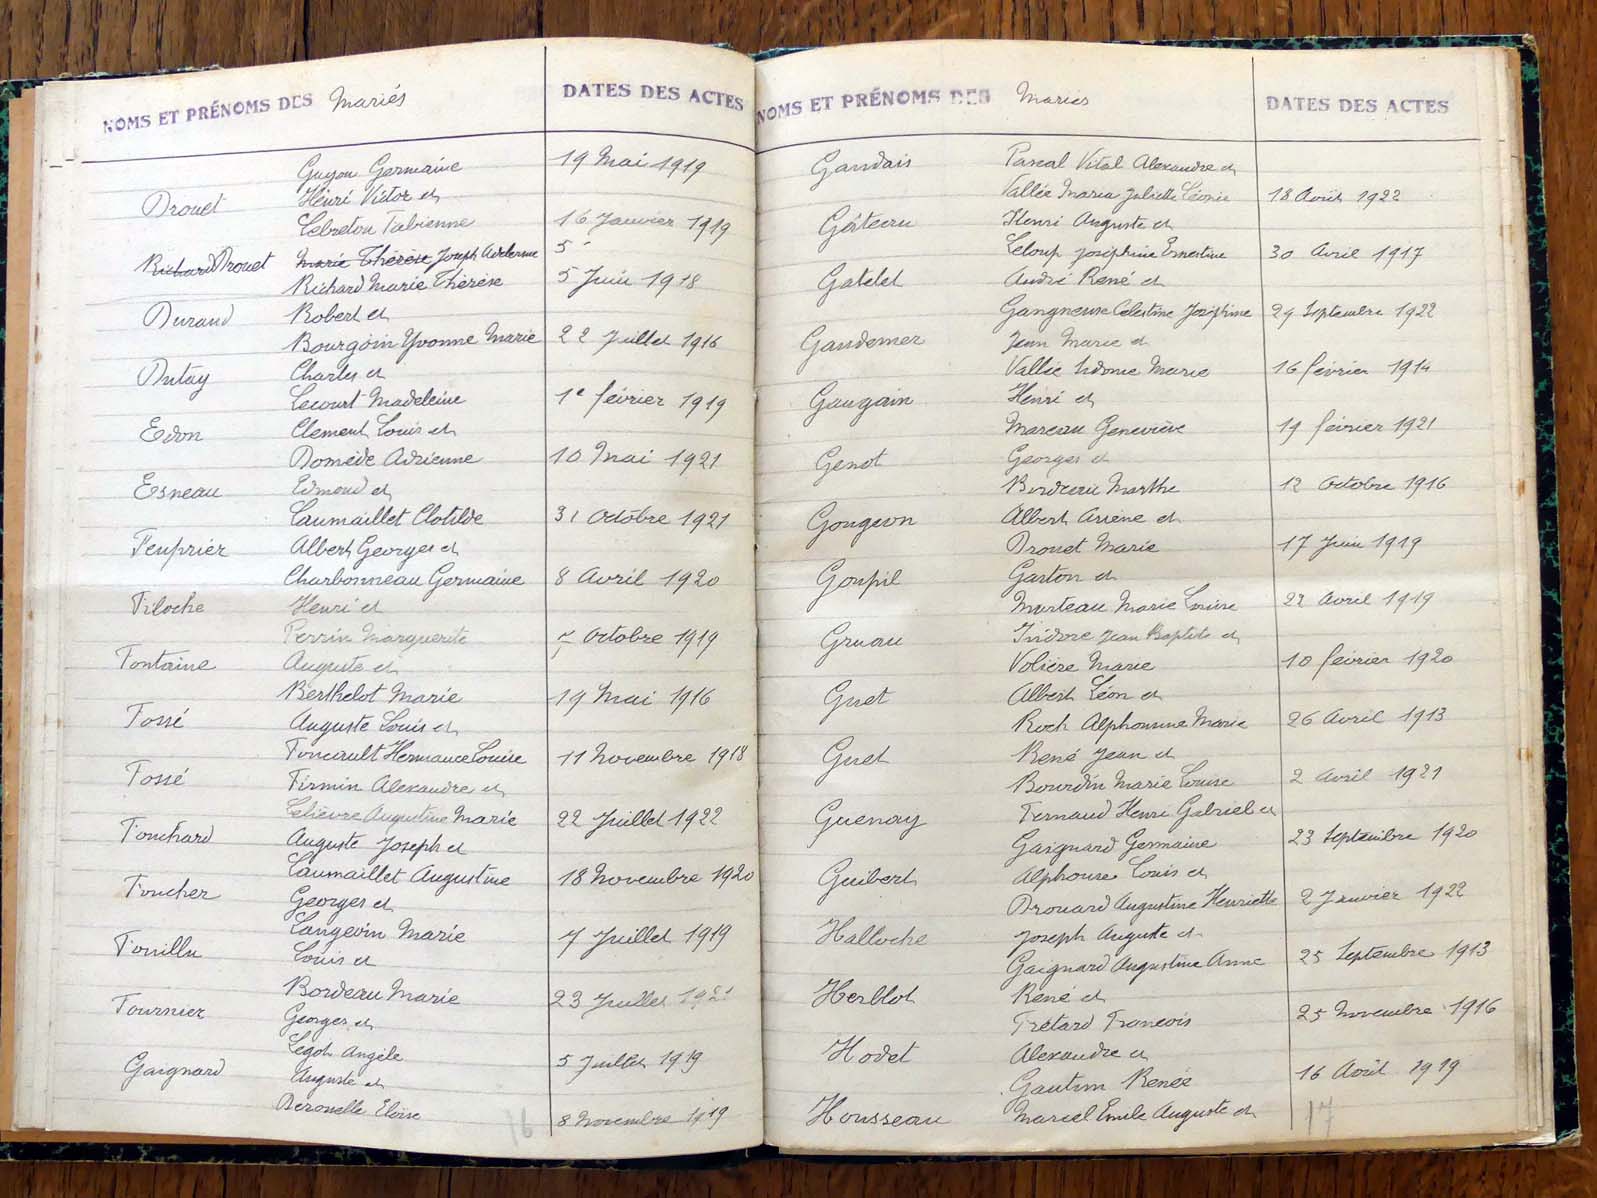 NOMS ET PRÉNOMS DES Mariés DATES DES ACTES
Guyon Germaine 19 Mai 1919
Drouet Henri Victor et
Lebreton Fabienne 16 Janvier 1919
Richard Drouet Marie Thérèse Joseph 5
Richard Marie Thérèse 5 Juin 1918
Durand Robert et
Bourgoin Yvonne Marie 22 Juillet 1916
Dutay Charles et
Lecourt Madeleine 1e février 1919
Edon Clement Louis et
Domède Adrienne 10 Mai 1921
Esneau Edmond et
Laumaillet Clotilde 31 Octobre 1921
Feuprier Albert Georges et
Charbonneau Germaine 8 Avril 1920
Filoche Henri et
Perrin Marguerite Octobre 1919
Fontaine Auguste et
Berthelot Marie 19 Mai 1916
Fossé Auguste Louis et
Foucault Hermance Louise 11 Novembre 1918
Fossé Firmin Alexandre et
Lelièvre Augustine Marie 22 Juillet 1922
Fouchard Auguste Joseph et
Laumaillet Augustine 18 Novembre 1920
Foucher Georges et
Langevin Marie 7 Juillet 1919
Fouillu Louis et
Bordeau Marie 23 Juillet 1921
Fournier Georges et
Legot Angèle 5 Juillet 1919
Gaignard Auguste et
Derouelle Eloise 8 Novembre 1919
16
NOMS ET PRÉNOMS DES Mariés DATES DES ACTES
Gandais Pascal Vital Alexandre et
Vallée Maria Juliette Léonie 18 Août 1922
Gâteau Henri Auguste et
Leloup Joséphine Ernestine 30 Avril 1917
Gatelet André René et
Gangneux Celestine Joséphine 29 Septembre 1922
Gaudemer Jean Marie et
Vallée Sidonie Marie 16 février 1914
Gaugain Henri et
Mareau Geneviève 19 février 1921
Genot Georges et
Bordeau Marthe 12 Octobre 1916
Gougeon Albert Arsene et
Drouet Marie 17 Juin 1919
Goupil Gaston et
Marteau Marie Louise 22 Avril 1919
Gruau Isidore Jean Baptiste et
Volière Marie 10 février 1920
Guet Albert Léon et
Roch Alphonsine Marie 26 Avril 1913
Guet René Jean et
Bourdin Marie Louise 2 Avril 1921
Guenay Fernand Henri Gabriel et
Gaignard Germaine 23 Septembre 1920
Guibert Alphonse Louis et
Drouard Augustine Henriette 2 Janvier 1922
Halloche Joseph Auguste et
Gaignard Augustine Anne 25 Septembre 1913
Herblot René et
Frétard Francois 25 Novembre 1916
Hodet Alexandre et
Renée 16 Août 1919
Housseau Marcel Emile Auguste et
17